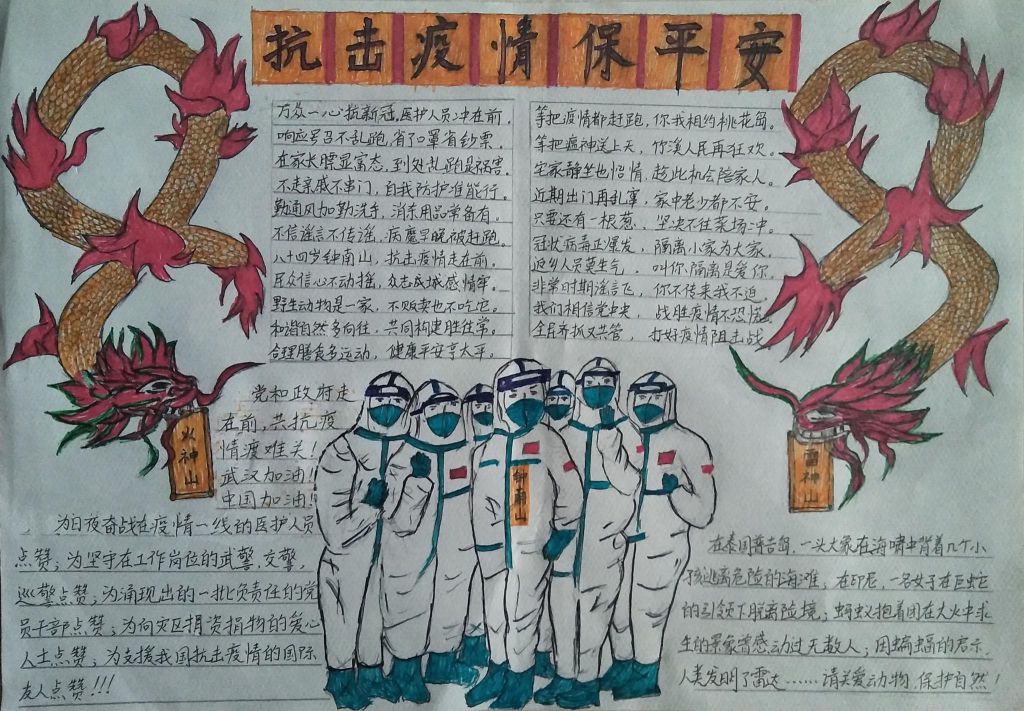 抗击疫情保平安
万众一心抗新冠,医护人员冲在前,
响应号召不乱跑,省了口罩省钞票。
在家长膘显富态,到处乱跑是祸害。
不走亲戚不串门,自我防护准能行。
勤通风加勤洗手,消杀用品常备有。
不信谣言不传谣,病魔早晚被赶跑。
八十四岁钟南山,抗击疫情走在前。
民众信心不动摇,众志成城感情牢。
野生动物是一家,不贩卖也不吃它。
和谐自然多向往,共同构建胜往常。
合理膳食多运动,健康平安享太平。
等把疫情都赶跑,你我相约桃花岛。
等把瘟神送上天,竹溪人民再狂欢。
宅家静坐也怡情,趁此机会陪家人。
近期出门再乱窜,家中老少都不安。
只要还有一根葱,坚决不往菜场冲。
冠状病毒正爆发,隔离小家为大家,
返乡人员莫生气,叫你隔离是爱你。
非常时期谣言飞,你不传来我不追,
我们相信党中央,战胜疫情不恐慌。
全民齐抓又共管,打好疫情阻击战
党和政府走
在前,共抗疫
情渡难关!
武汉加油!
中国加油!
火神山
钟南山
雷神山
为日夜奋战在疫情一线的医护人员
点赞;为坚守在工作岗位的武警,交警,
巡警点赞;为涌现出的一批负责任的党
员干部点赞;为向灾区捐资捐物的爱心
人士点赞;为支援我国抗击疫情的国际
友人点赞!!!
在泰国普吉岛,一头大象在海啸中背着几个小
孩逃离危险的海滩,在印尼,一名女子在巨蛇
的引领下脱离险境,蚂蚁抱着团在大火中求
生的景象曾感动过无数人;因蝙蝠的启示,
人类发明了雷达……请关爱动物,保护自然!